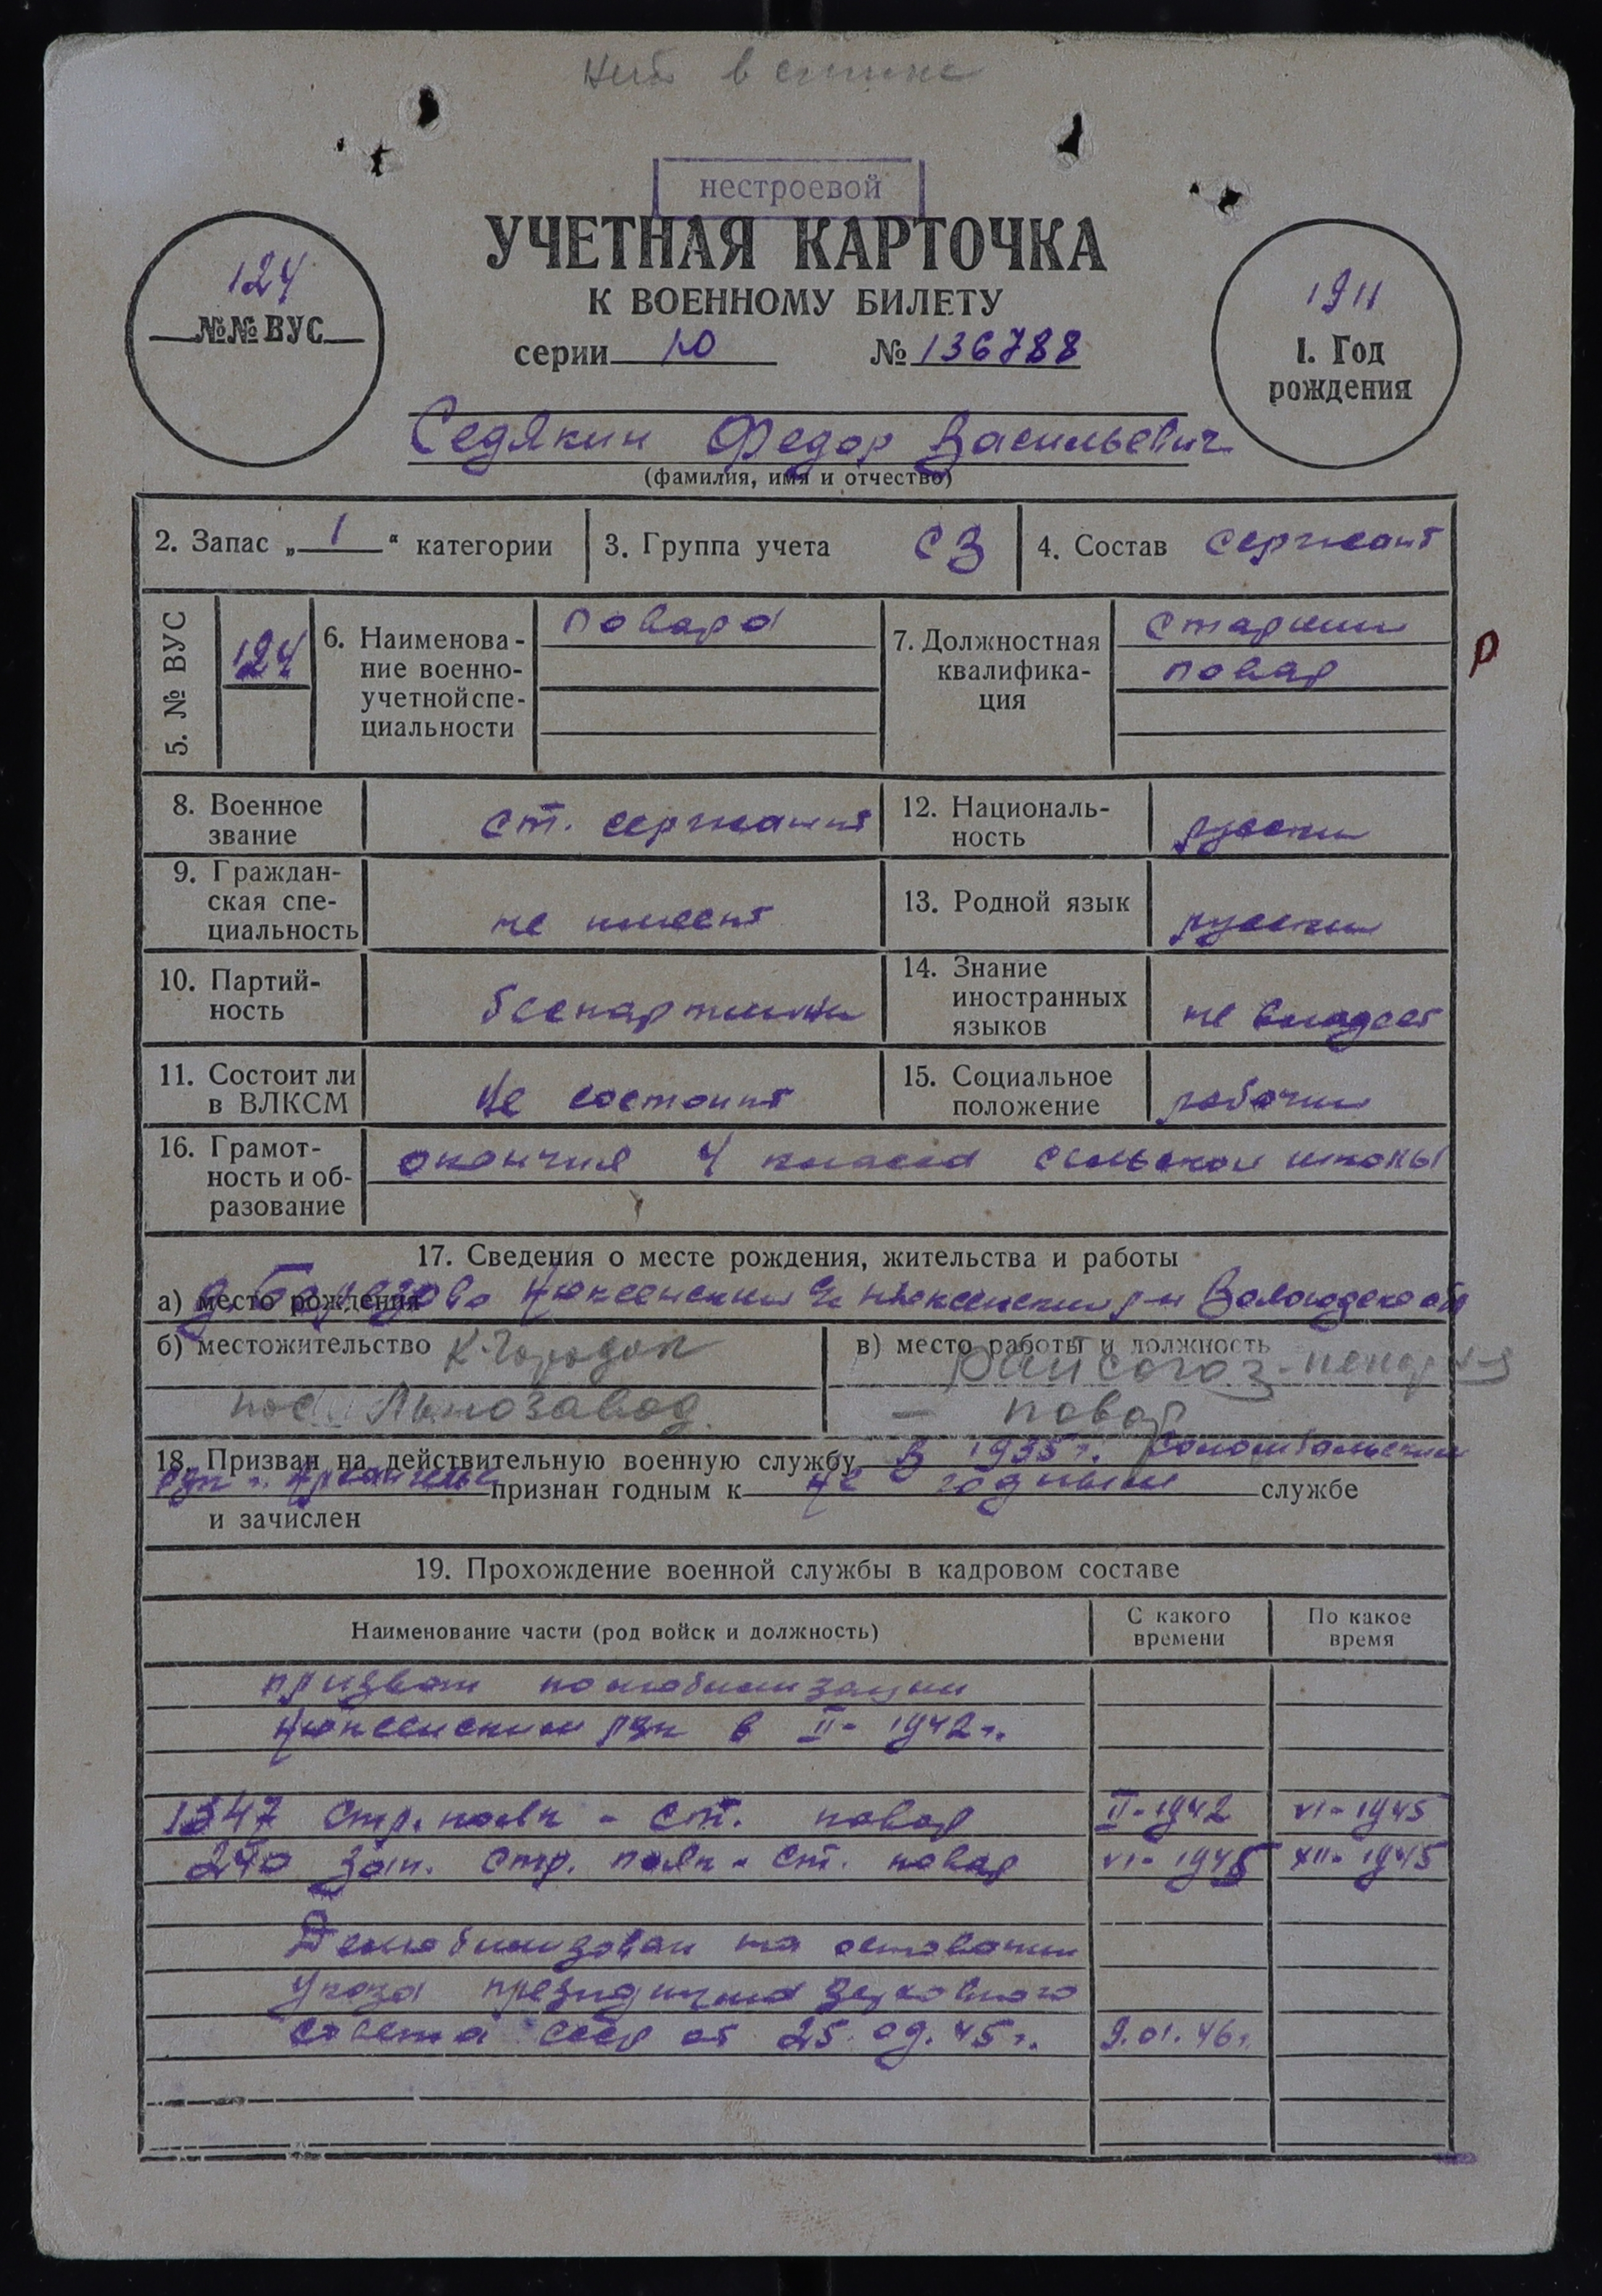 нестроевой
УЧЕТНАЯ КАРТОЧКА
К ВОЕННОМУ БИЛЕТУ
серии Ю № 136788
124
№№ ВУС
1911
1. Год
рождения
Седякин Федор Васильевич
(фамилия, имя и отчество)
2. Запас „ 1 “ категории
3. Группа учета СЗ
4. Состав сержант
5. № ВУС
124
6. Наименова-
ние военно-
учетной спе-
циальности
повара
7. Должностная
квалифика-
ция
старший
повар
р
8. Военное
звание
ст. сержант
12. Националь-
ность
русский
9. Граждан-
ская спе-
циальность
не имеет
13. Родной язык
русский
10. Партий-
ность
беспартийный
14. Знание
иностранных
языков
не владеет
11. Состоит ли
в ВЛКСМ
не состоит
15. Социальное
положение
рабочий
16. Грамот-
ность и об-
разование
окончил 4 класса сельской школы
17. Сведения о месте рождения, жительства и работы
а) место рождения д. Нюксенский Нюксенский р-н Вологодской обл
б) местожительство К-Городок
пос Льнозавод
в) место работы и должность
райсоюз-
– повар
18. Призван на действительную военную службу в 1935 г. Соломбальским
рвк г. Архангельс признан годным к не годным службе
и зачислен
19. Прохождение военной службы в кадровом составе
Наименование части (род войск и должность)
С какого
времени
По какое
время
призван по мобилизации
Нюксенским рвк в II- 1942 г.
1347 стр. полк - ст. повар II-1942 VI-1945
240 зап. стр. полк - ст. повар VI-1945 XII-1945
Демобилизован на основании
указа президиума Верховного
Совета СССР от 25.09.45 г. 9.01.46 г.